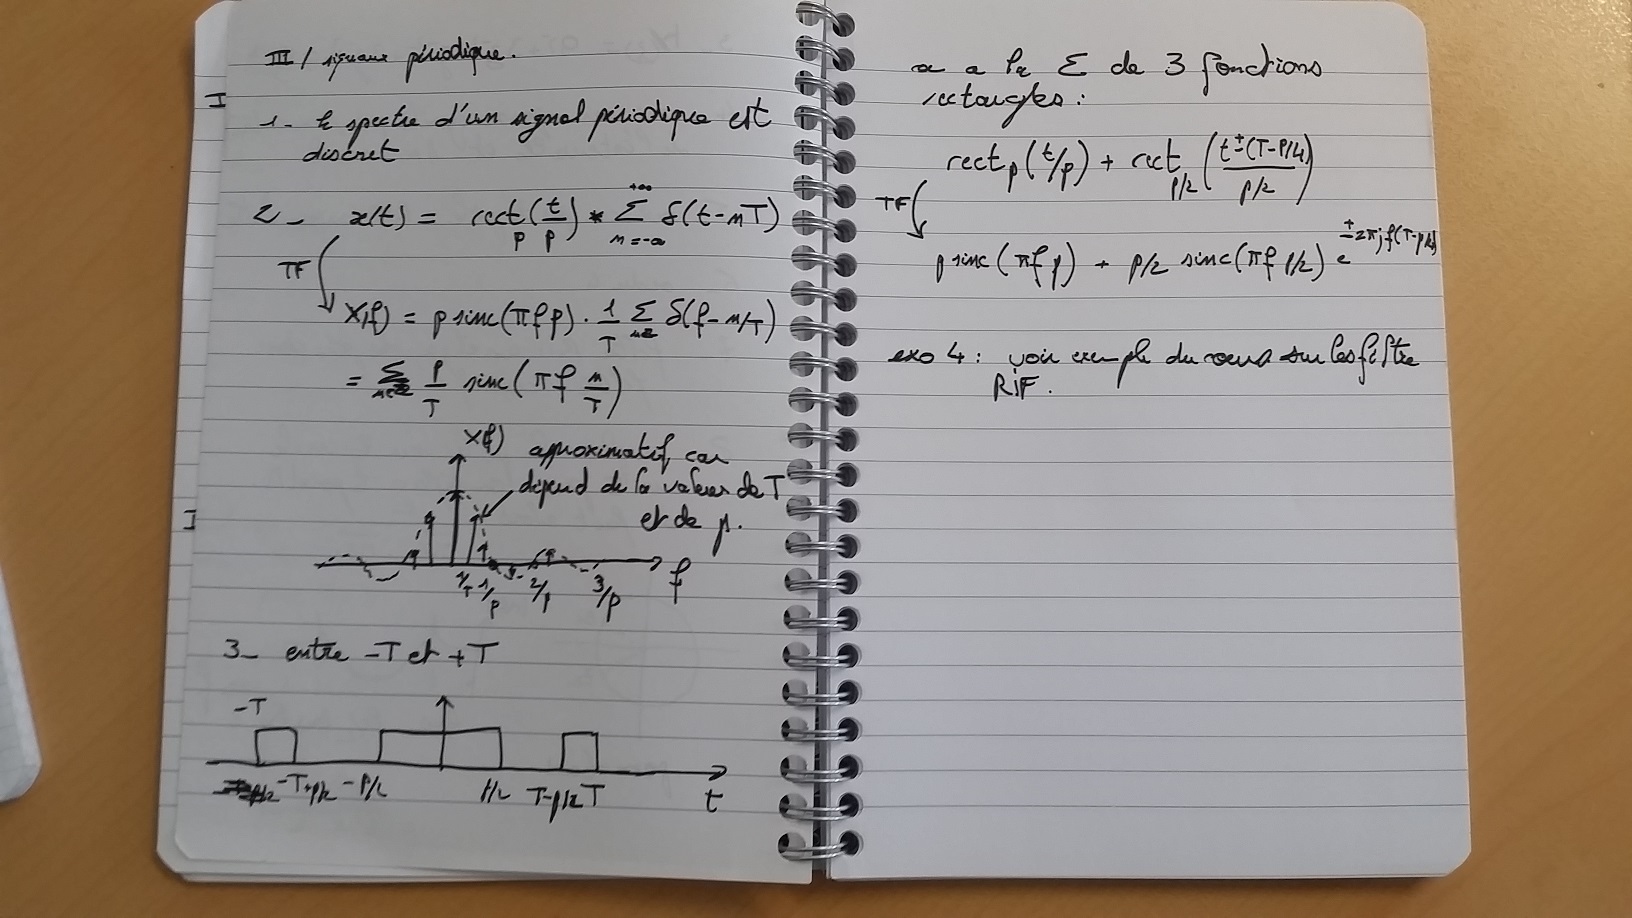 III / signaux périodique.
1- le spectre d'un signal périodique est
discret
2- x(t) = rect_p(t/p) * Σ_{n=-∞}^{+∞} δ(t-mT)
TF
X(f) = p sinc(πfp) . 1/T Σ δ(f-m/T)
= Σ p/T sinc(πf m/T)
X(f)
approximatif car
dépend de la valeur de T
et de p.
f
1/T 1/p 2/p 3/p
3- entre -T et +T
-T
-T+p/2 -p/2 p/2 T-p/2 T
t
on a la Σ de 3 fonctions
rectangles :
rect_p(t/p) + rect_{p/2}((t±(T-p/4))/(p/2))
TF
p sinc(πfp) + p/2 sinc(πf p/2) e^{±2πjf(T-p/4)}
exo 4 : voir exemple du cours sur les filtre
RIF.